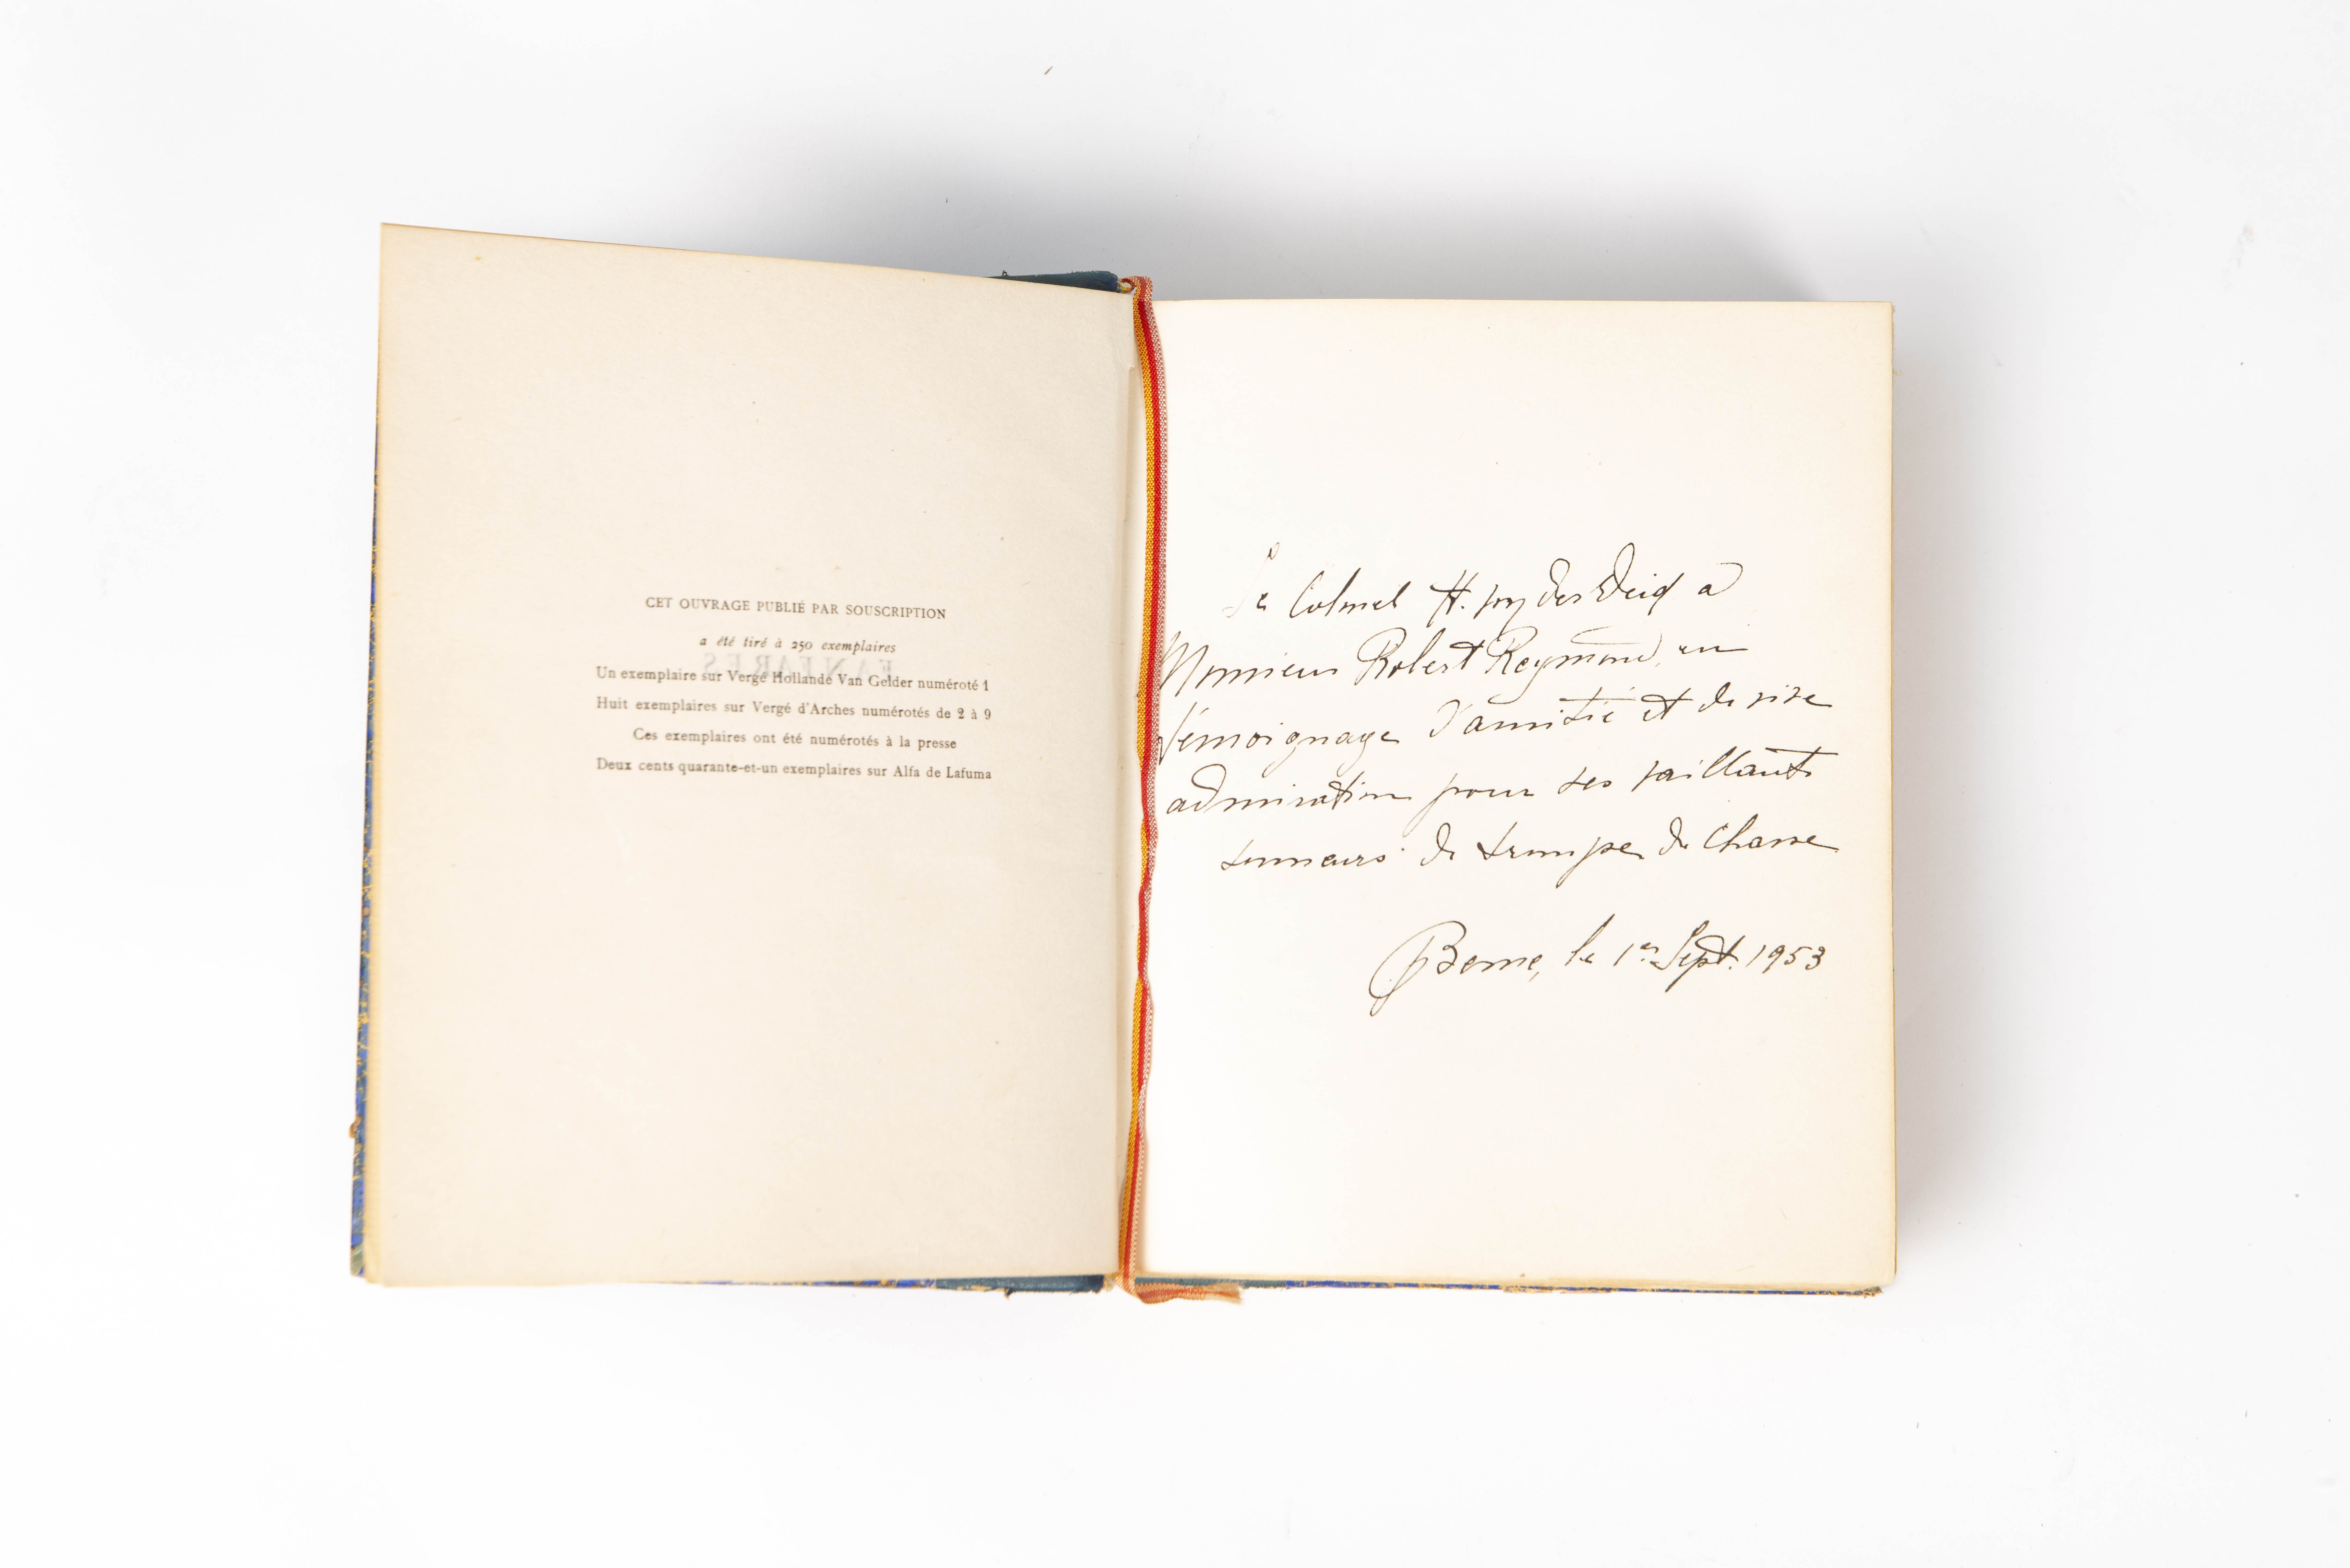 CET OUVRAGE PUBLIÉ PAR SOUSCRIPTION
a été tiré à 250 exemplaires
Un exemplaire sur Vergé Hollande Van Gelder numéroté 1
Huit exemplaires sur Vergé d'Arches numérotés de 2 à 9
Ces exemplaires ont été numérotés à la presse
Deux cents quarante-et-un exemplaires sur Alfa de Lafuma
FANFARES
Le Colonel H. von der Weid à
Monsieur Robert Reymond, en
témoignage d'amitié et de vive
admiration pour ses vaillants
sonneurs de trompe de Chasse
Berne, le 1er Sept. 1953